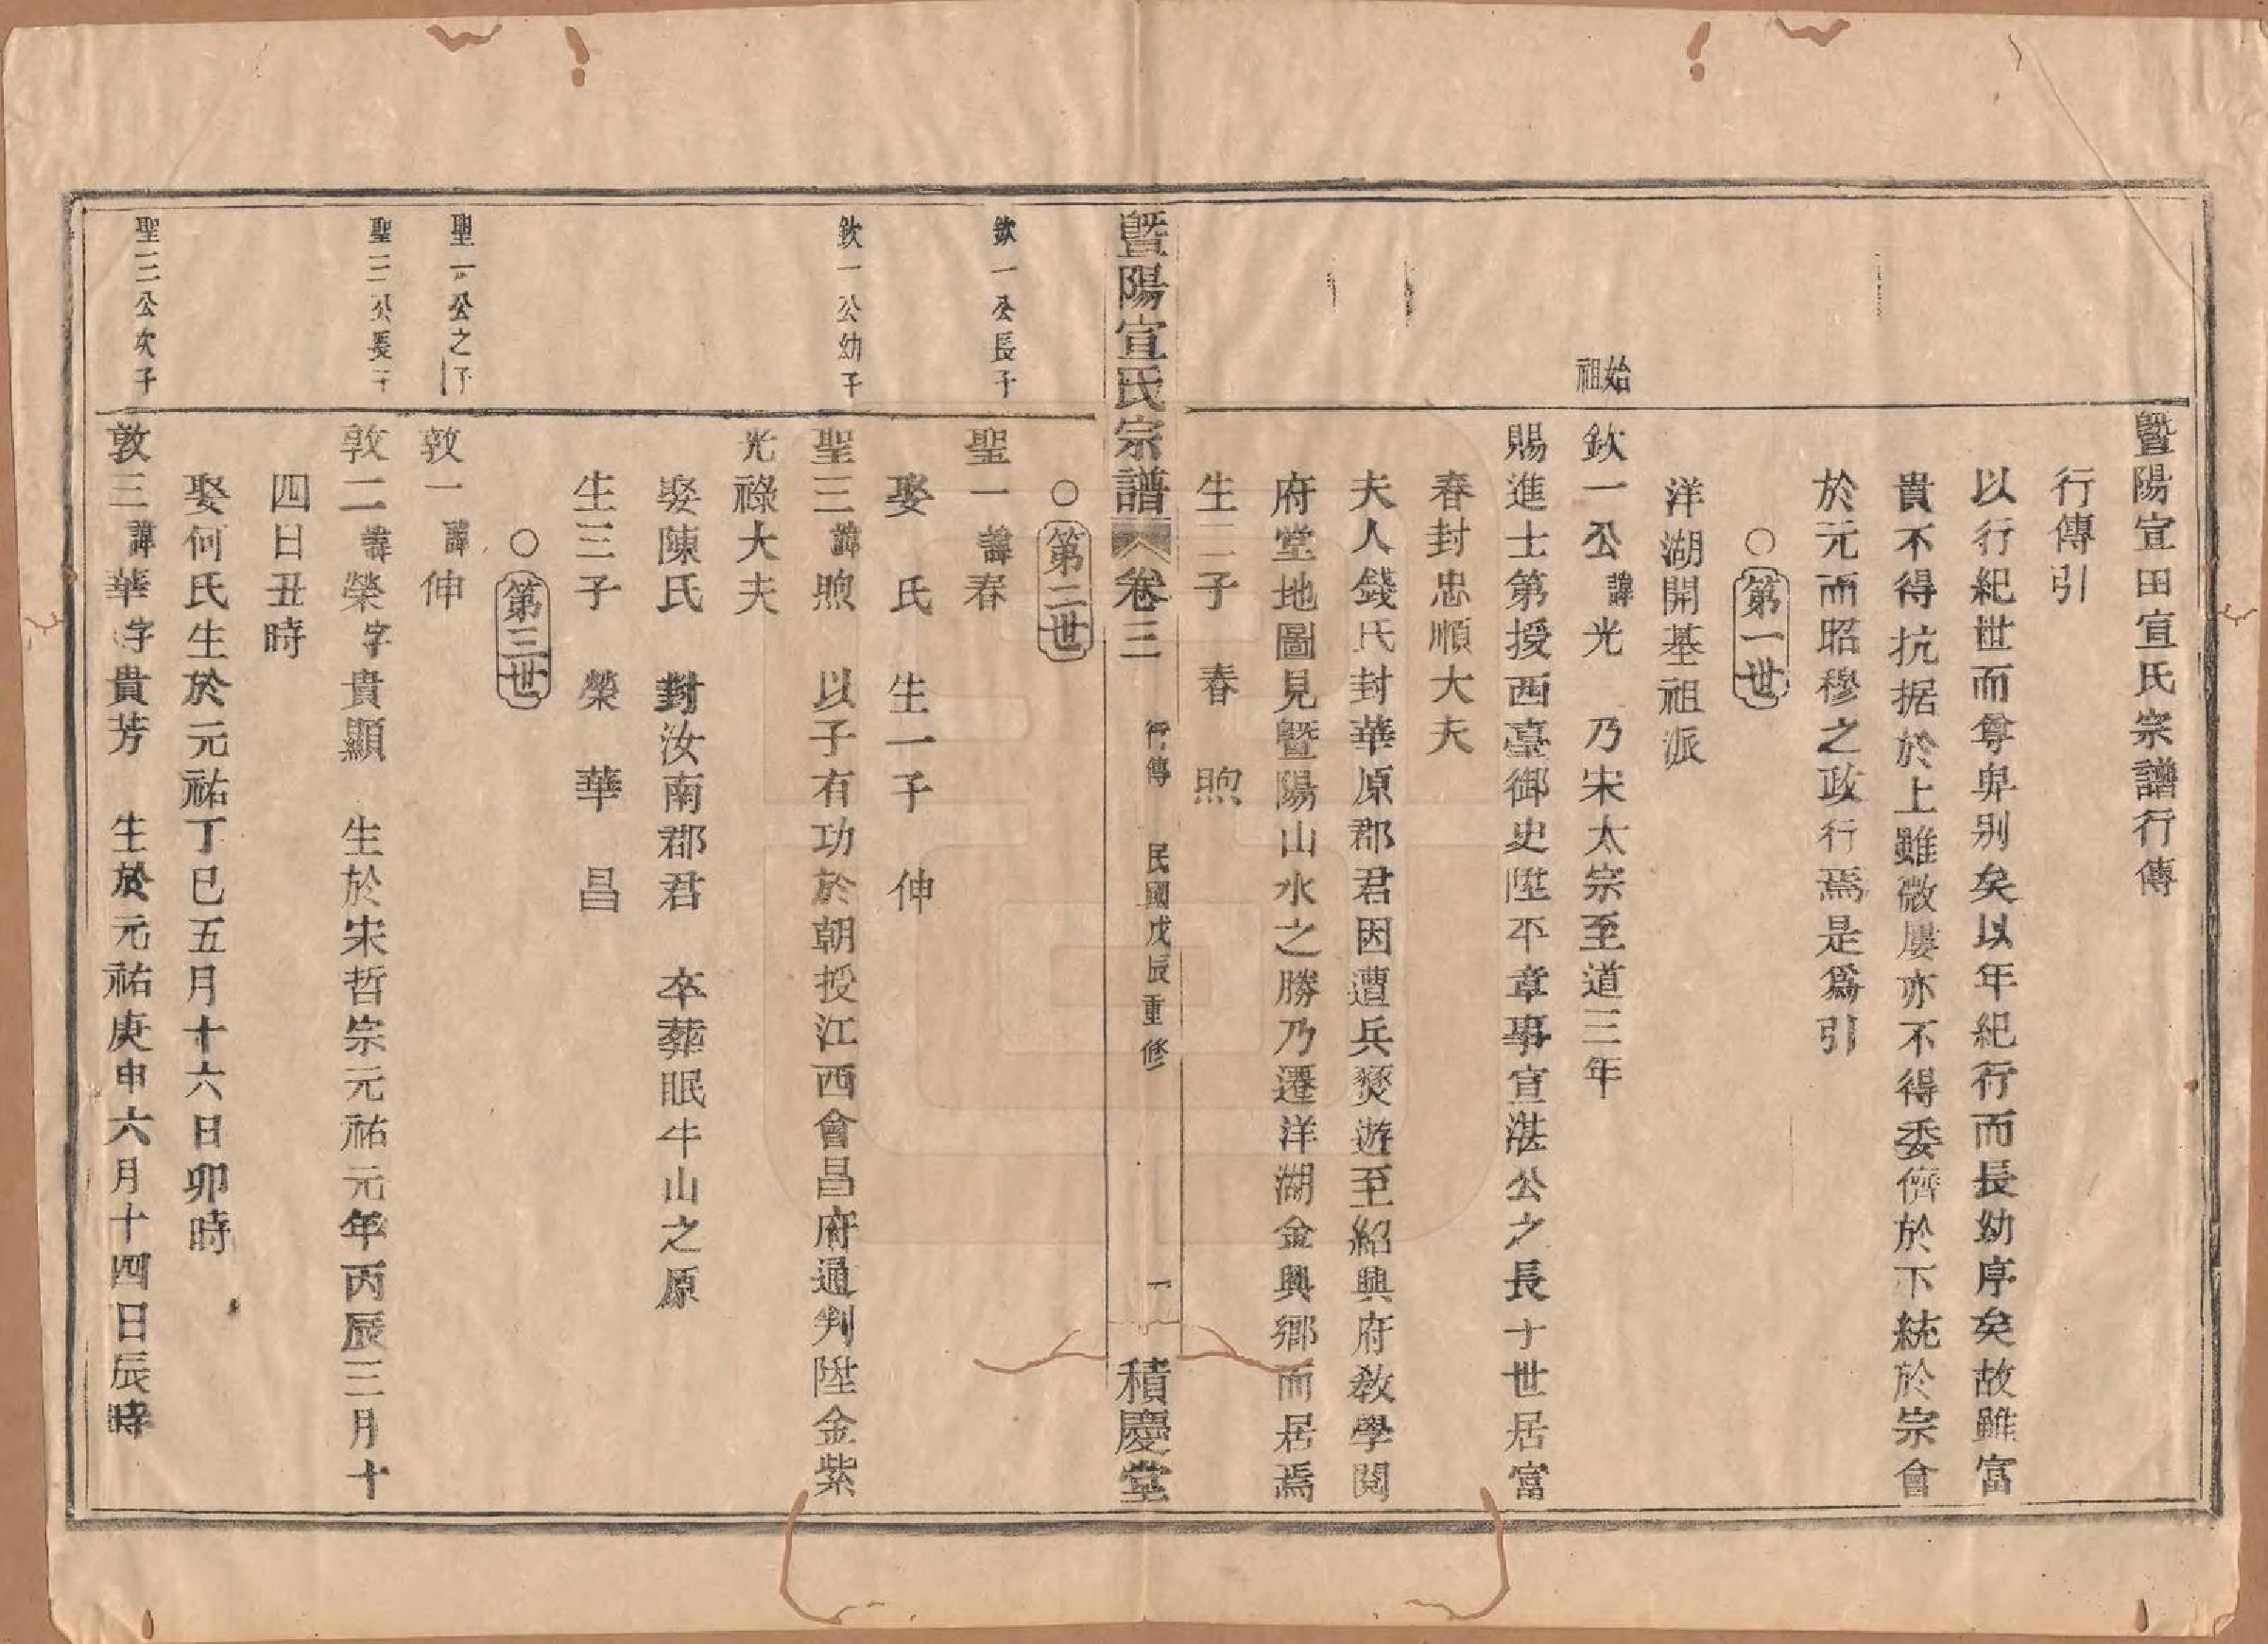 暨陽宣田宣氏宗譜行傳
行傳引
以行紀世而尊卑别矣以年紀行而長幼序矣故雖富
貴不得抗据於上雖微屢亦不得委儕於下統於宗會
於元而昭穆之政行焉是爲引
○第一世
洋湖開基祖派
始祖
欽一公諱光 乃宋太宗至道三年
賜進士第授西臺御史陞平章事宣湛公之長十世居富
春封忠順大夫
夫人錢氏封華原郡君因遭兵燹遊至紹興府教學閱
府堂地圖見暨陽山水之勝乃遷洋湖金興鄉而居焉
生二子 春 煦
暨陽宣氏宗譜 卷三 行傳 民國戊辰重修 一 積慶堂
○第二世
欽一公長子
聖一諱春
娶 氏 生一子 伸
欽一公幼子
聖三諱煦 以子有功於朝授江西會昌府通判陞金紫
光祿大夫
娶陳氏 封汝南郡君 卒葬眠牛山之原
生三子 榮 華 昌
○第三世
聖一公之子
敦一諱伸
聖三公長子
敦二諱榮字貴顯 生於宋哲宗元祐元年丙辰三月十
四日丑時
娶何氏生於元祐丁巳五月十六日卯時
聖三公次子
敦三諱華字貴芳 生於元祐庚申六月十四日辰時